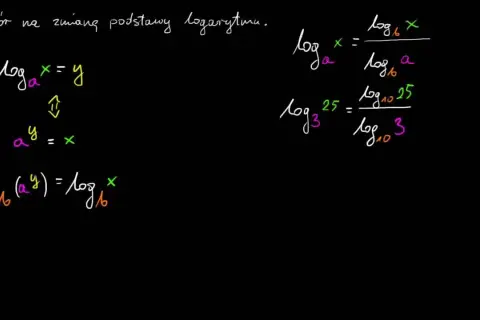 ór na zmianę podstawy logarytmu.
log_a x = y
⇕
a^y = x
_b (a^y) = log_b x
log_a x = log_b x / log_b a
log_3 25 = log_10 25 / log_10 3